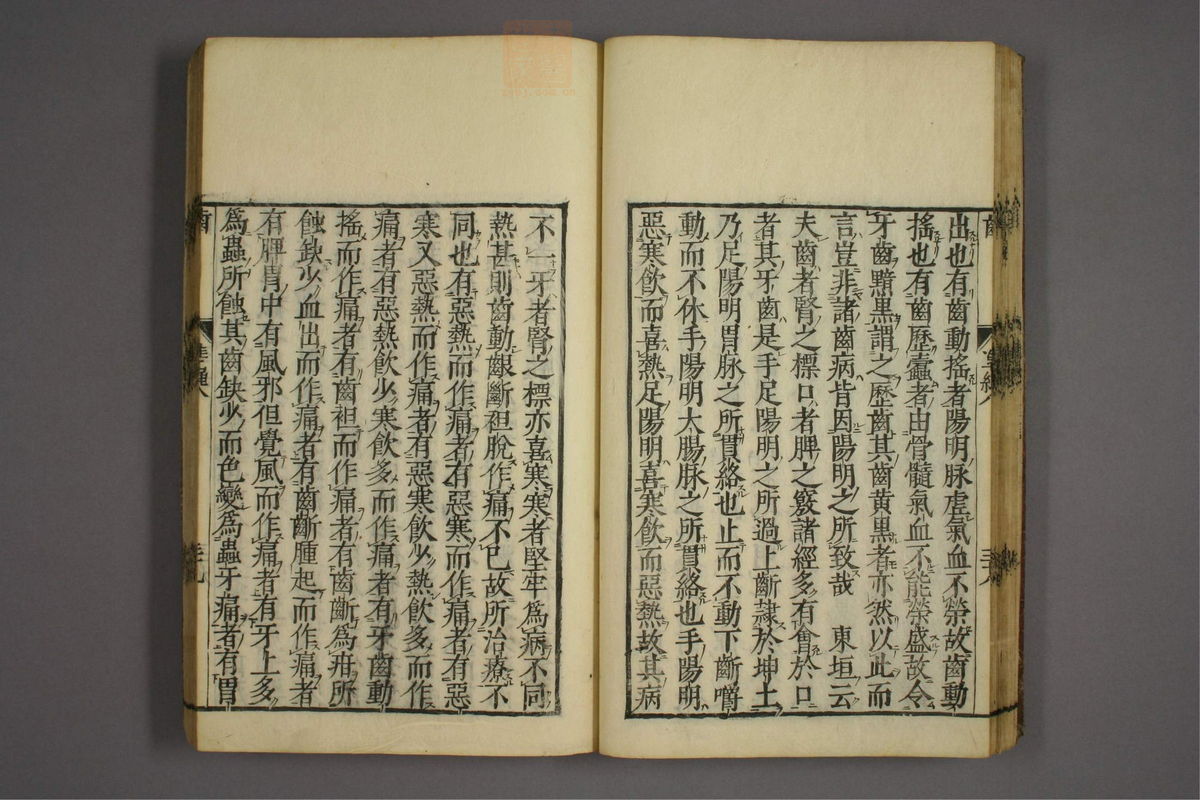 出也有齒動搖者陽明脉虛氣血不榮故齒動
搖也有齒歷蠹者由骨髓氣血不能榮盛故令
牙齒黯黒謂之歷齒其齒黄黒者亦然以此而
言豈非諸齒病皆因陽明之所致哉　東垣云
夫齒者腎之標口者脾之竅諸經多有會於口
者其牙齒是手足陽明之所過上齗隷於坤土
乃足陽明胃脉之所貫絡也止而不動下齗嚼
動而不休手陽明大腸脉之所貫絡也手陽明
惡寒飲而喜熱足陽明喜寒飲而惡熱故其病
不一牙者腎之標亦喜寒寒者堅牢為病不同
熱甚則齒動齦齗袒脫作痛不已故所治療不
同也有惡熱而作痛者有惡寒而作痛者有惡
寒又惡熱而作痛者有惡寒飲少熱飲多而作
痛者有惡熱飲少寒飲多而作痛者有牙齒動
搖而作痛者有齒袒而作痛者有齒齗為疳所
蝕缺少血出而作痛者有齒齗腫起而作痛者
有脾胃中有風邪但覺風而作痛者有牙上多
為蟲所蝕其齒缺少而色變為蟲牙痛者有胃